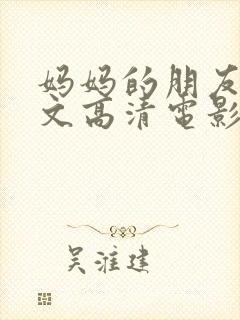 妈妈的朋友
文高清电影
吴淮建